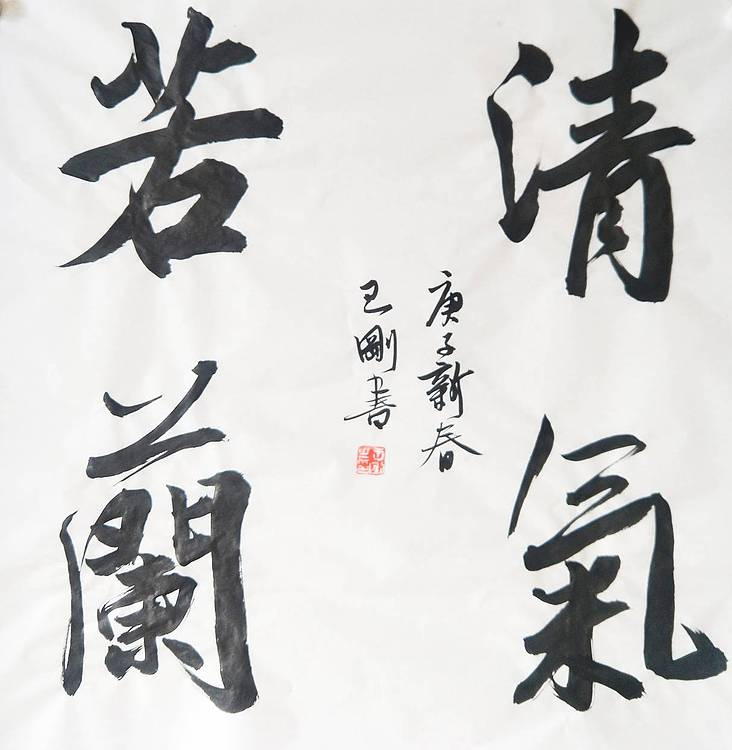 清氣
若蘭
庚子新春
剛書